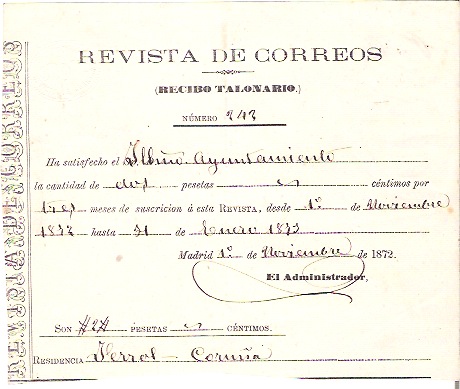 REVISTA DE CORREOS
(RECIBO TALONARIO.)
NÚMERO 243
Ha satisfecho el Illmo. Ayuntamiento
la cantidad de dos pesetas céntimos por
tres meses de suscricion á esta REVISTA, desde 1º de Noviembre
1872 hasta 31 de Enero 1873
Madrid 1º de Noviembre de 1872.
El Administrador,
SON #2# PESETAS CÉNTIMOS.
RESIDENCIA Ferrol - Coruña
REVISTA DE CORREOS